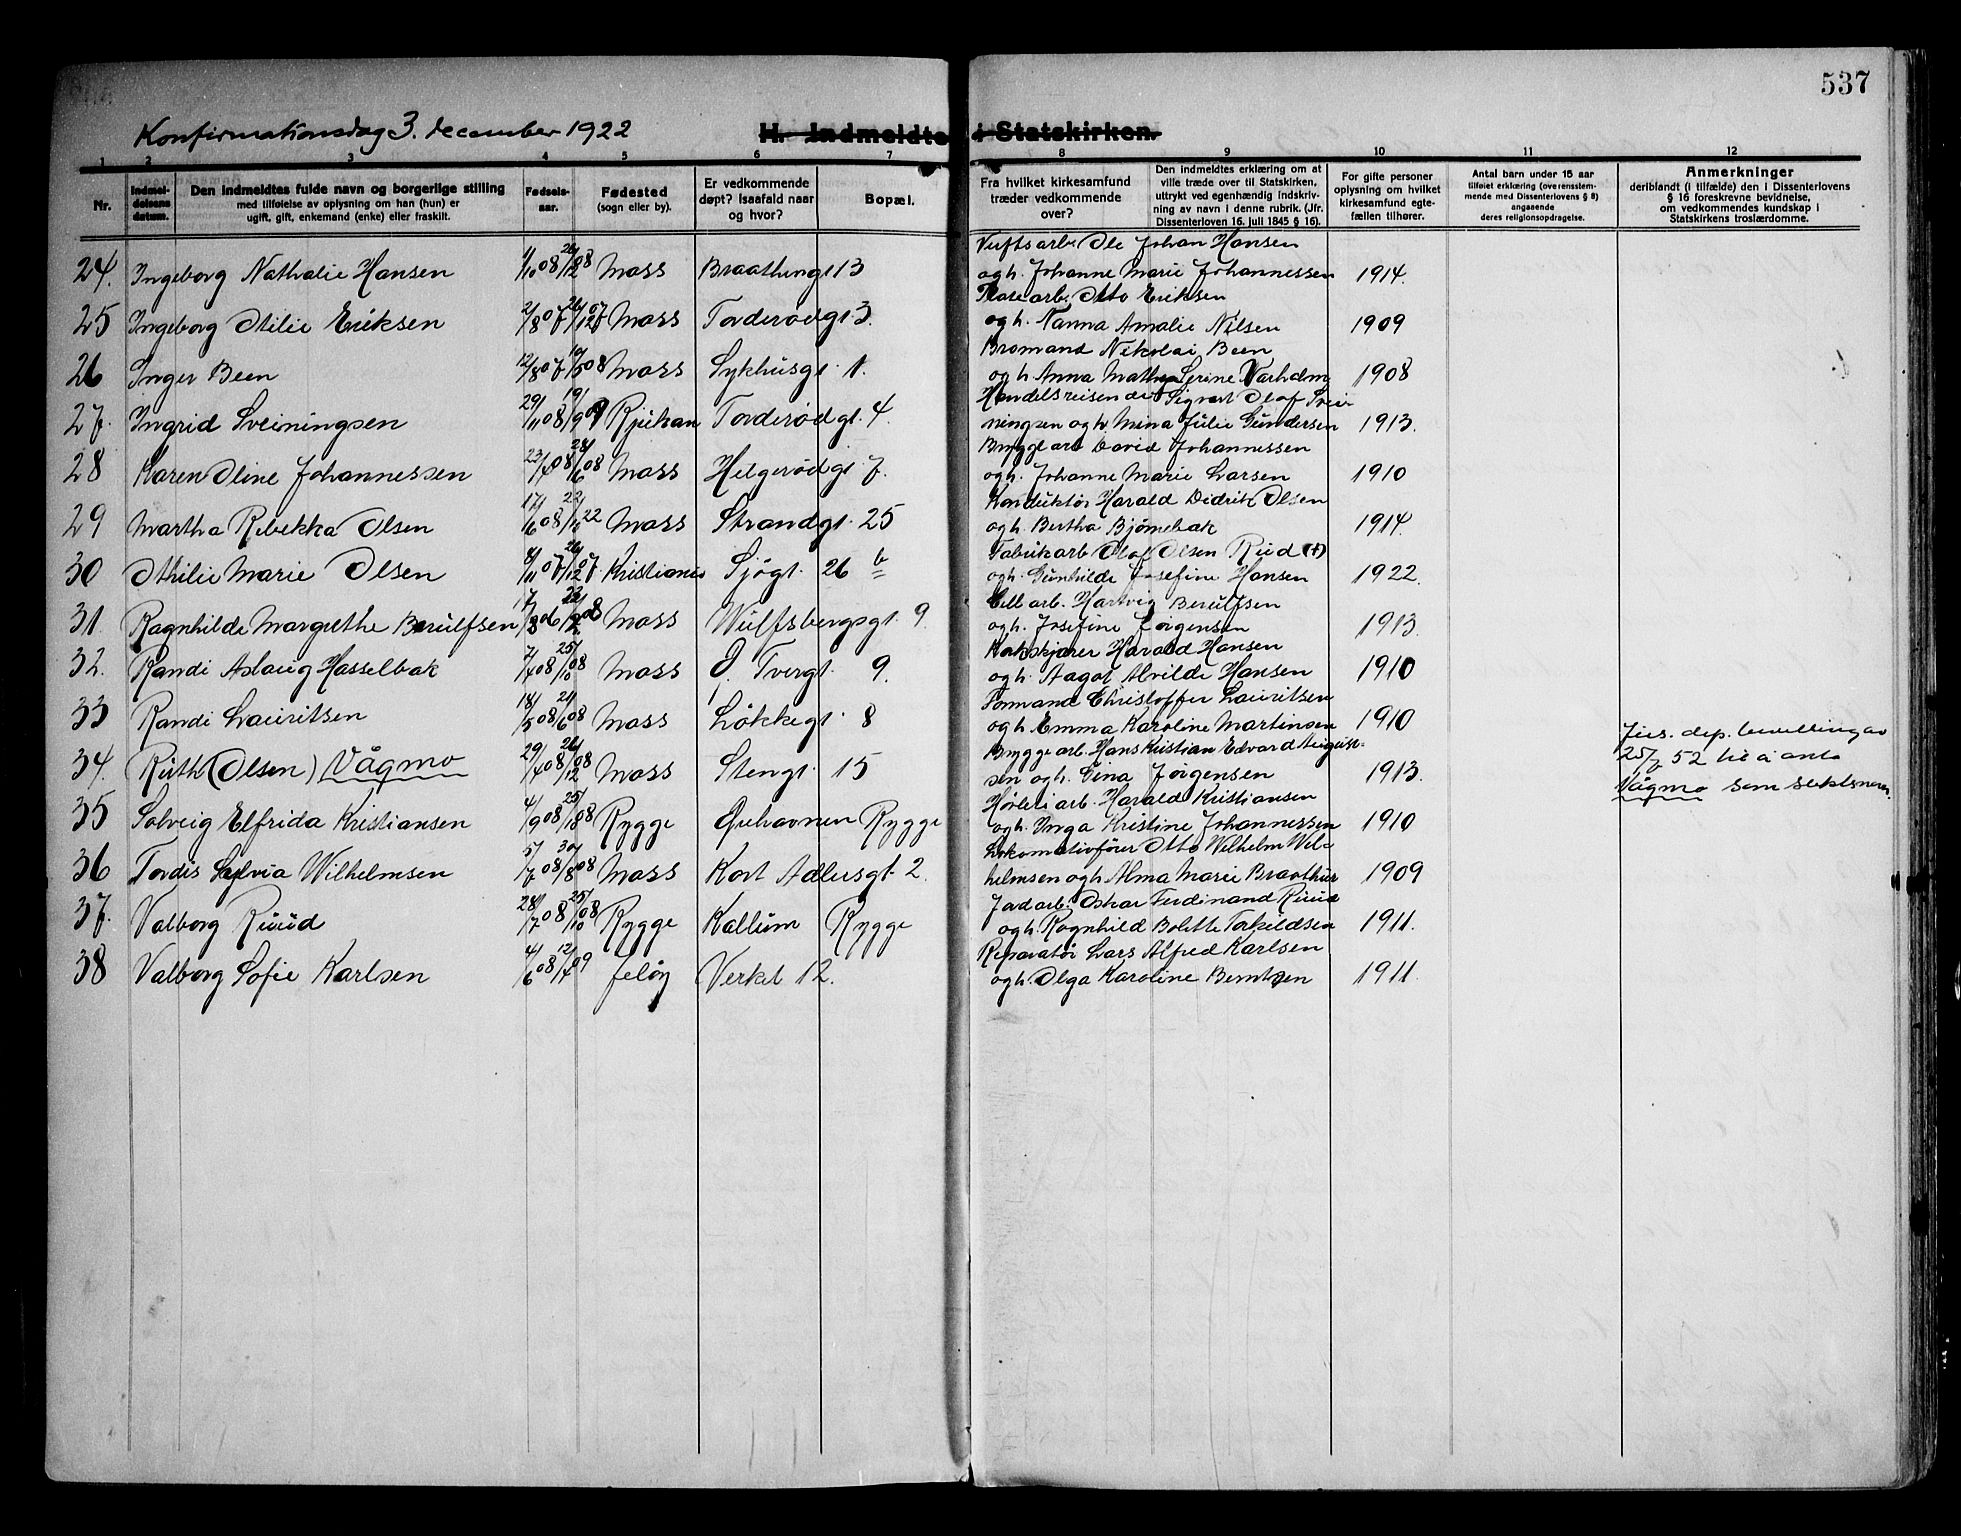 537
Konfirmationsdag 3. december 1922
H. Indmeldte i Statskirken.
1 2 3 4 5 6 7 8 9 10 11 12
Nr.
Indmel-
delsens
datum.
Den indmeldtes fulde navn og borgerlige stilling
med tilføielse av oplysning om han (hun) er
ugift, gift, enkemand (enke) eller fraskilt.
Fødsels-
aar.
Fødested
(sogn eller by).
Er vedkommende
døpt? Isaafald naar
og hvor?
Bopæl.
Fra hvilket kirkesamfund
træder vedkommende
over?
Den indmeldtes erklæring om at
ville træde over til Statskirken,
uttrykt ved egenhændig indskriv-
ning av navn i denne rubrik. (Jfr.
Dissenterloven 16. juli 1845 § 16).
For gifte personer
oplysning om hvilket
kirkesamfund egte-
fællen tilhører.
Antal barn under 15 aar
tilføiet erklæring (overensstem-
mende med Dissenterlovens § 8)
angaaende
deres religionsopdragelse.
Anmerkninger
deriblandt (i tilfælde) den i Dissenterlovens
§ 16 foreskrevne bevidnelse,
om vedkommendes kundskap i
Statskirkens troslærdomme.
Ole Johan Hansen
24. Ingeborg Nathalie Hansen 1/10 08 26/12 08 Moss Braathengt 13 og h. Johanne Marie Johannessen 1914.
arb. Otto Eriksen
25 Ingeborg Otilie Eriksen 2/8 07 26/12 07 Moss Torderødgt 3. og h. Nanna Amalie Nilsen 1909
Bromand Nikolai Been
26 Inger Been 12/8 07 Moss Sykhusgt. 1. og h. Anna Serine Varholm 1908
Handelsreisende Sigvart Olof Svei-
27. Ingrid Sveiningsen 29/11 08 19/9 09 Rjukan Torderødgt. 4. ningsen og h. Mina Julie Gundersen 1913.
Bryggearb David Johannessen
28 Karen Oline Johannessen 23/4 08 28/6 08 Moss Helgerødgt. 7. og h. Johanne Marie Larsen 1910
Konduktør Harald Didrik Olsen
29 Martha Rebekka Olsen 17/6 08 22 Moss Strandgt. 25 og h. Bertha Bjørnebak 1914.
Fabrikarb Olaf Olsen Rud (†)
30 Othilie Marie Olsen 4/11 07 26/12 07 Kristiania Sjøgt. 26 b og h. Gunhilde Josefine Hansen 1922.
Cell arb. Hartvig Berulfsen
31. Ragnhilde Margrethe Berulfsen Moss Wulfsbergsgt. 9. og h. Josefine Jørgensen 1913.
Harald Hansen
32. Randi Aslaug Hasselbak 7/7 08 25/10 08 Moss Ø. Tvergt. 9. og h. Aagot Alvilde Hansen 1910
Formand Christoffer Lauritsen
33 Randi Lauritsen 18/5 08 21/6 08 Moss Løkkegt. 8 og h. Emma Karoline Martinsen 1910
Bryggearb. Hans Kristian Edvard August-
34. Ruth (Olsen) Vågmo 29/4 08 26/12 08 Moss Stengt. 15 sen og h. Gina Jørgensen 1913.
Jus. dep. bevilling av
25/7 52 til å anta
Vågmo som slektsnavn.
Høvleriarb. Harald Kristiansen
35 Solveig Elfrida Kristiansen 4/9 08 25/10 08 Rygge Rygge og h. Inga Kristine Johannessen 1910
Lokomotivfører Otto Wilhelm Wil-
36 Tordis Sylvia Wilhelmsen 5/7 08 30/8 08 Moss Kort Adlersgt. 2. helmsen og h. Alma Marie Braathur 1909
Jordarb. Oskar Ferdinand Ruud
37. Valborg Ruud 28/7 08 25/10 08 Rygge Kallum Rygge og h. Ragnhild Bolette Torkildsen 1911.
Reparatør Lars Alfred Karlsen
38 Valborg Sofie Karlsen 4/6 08 12/4 09 Jeløy Verket 12. og h. Olga Karoline Berntsen 1911.